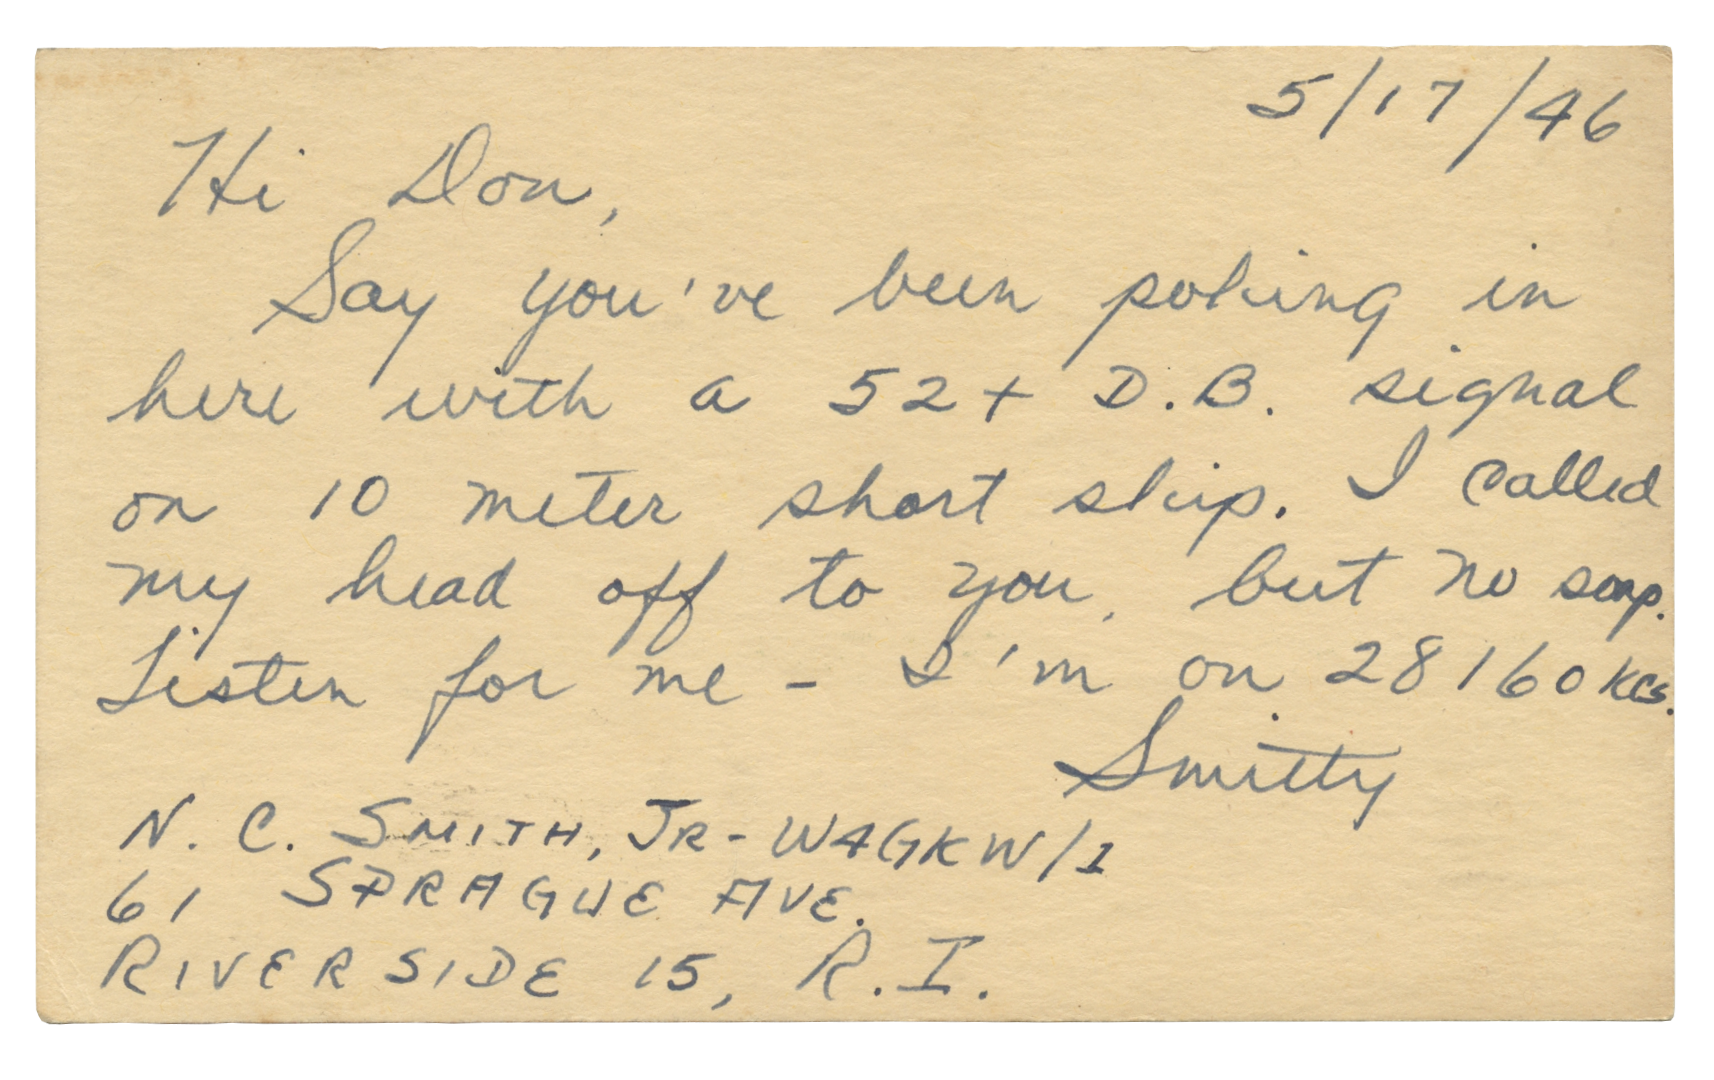 5/17/46
Hi Don,
Say you've been poking in
here with a 52+ D.B. signal
on 10 meter short skip. I called
my head off to you, but no soap.
Listen for me - I'm on 28160 kcs.
Smitty
N. C. SMITH, JR - W4GKW/1
61 SPRAGUE AVE.
RIVERSIDE 15, R.I.